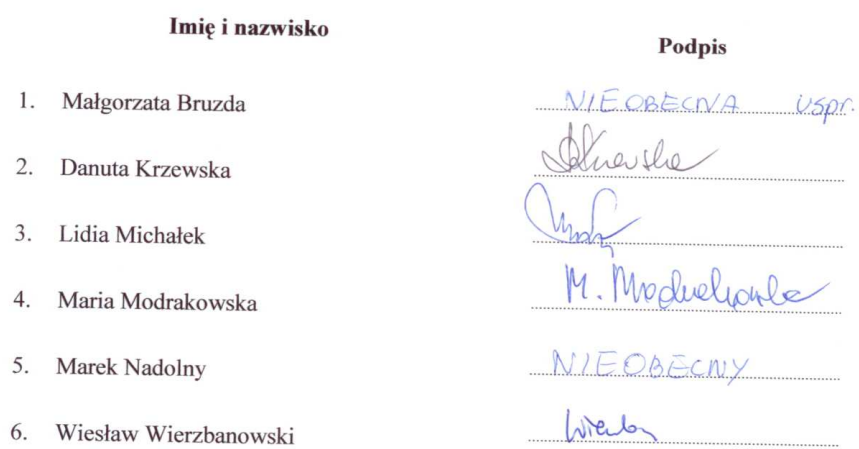 Imię i nazwisko
Podpis
1. Małgorzata Bruzda NIEOBECNA uspr.
2. Danuta Krzewska
3. Lidia Michałek
4. Maria Modrakowska M. Modrakowska
5. Marek Nadolny NIEOBECNY
6. Wiesław Wierzbanowski